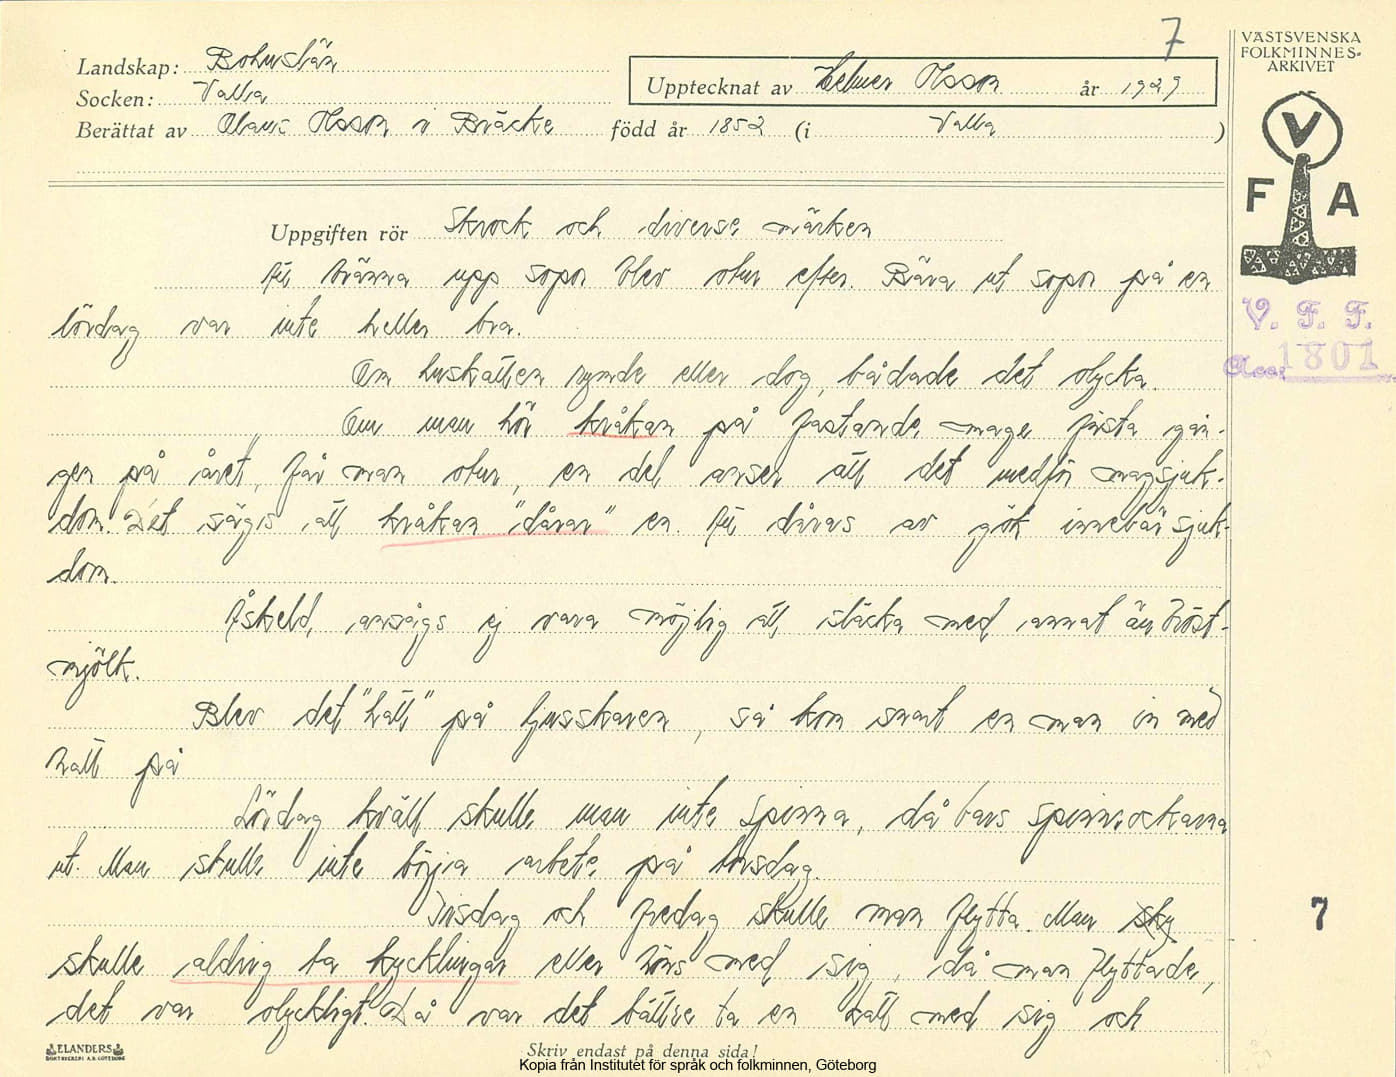 7
VÄSTSVENSKA
FOLKMINNES-
ARKIVET
Landskap: Bohuslän
Socken: Valla
Upptecknat av Helmer Olsson år 1929
Berättat av Olaus Olsson i Bräcke född år 1852 (i Valla)
V
F A
Uppgiften rör Skrock och diverse märken
Att bränna upp sopor blev otur efter. Bära ut sopor på en
lördag var inte heller bra.
V. F. F.
Acc. 1801
Om huskatten rymde eller dog, bådade det olycka.
Om man hör kråkan på fastande mage första gån-
gen på året, får man otur, en del anser att det medför magsjuk-
dom. Det sägis att kråkan "dårar" en. Att dåras av gök innebär sjuk-
dom.
Åskeld, ansågs ej vara möjlig att släcka med annat än bröst-
mjölk.
Blev det "hatt" på ljusskaren, så kom snart en man in med
hatt på
Lördag kväll skulle man inte spinna, då bars spinnrockarna
ut. Man skulle inte börja arbete på torsdag.
Tisdag och fredag skulle man flytta. Man sky
skulle aldrig ta kycklingar eller höns med sig, då man flyttade,
det var olyckligt. Då var det bättre ta en katt med sig och
7
ELANDERS
BOKTRYCKERI A.B. GÖTEBORG
Skriv endast på denna sida!
Kopia från Institutet för språk och folkminnen, Göteborg